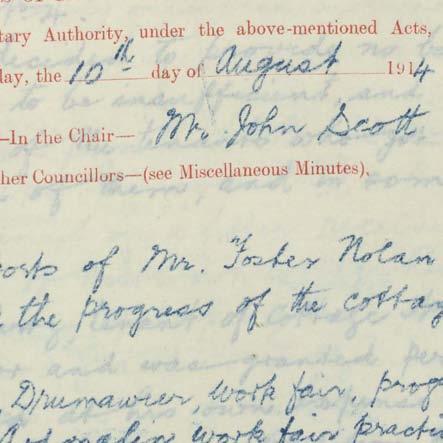 tary Authority, under the above-mentioned Acts,
day, the 10th day of August 1914
—In the Chair— Mr. John Scott
her Councillors—(see Miscellaneous Minutes).
orts of Mr. Foster Nolan
the progress of the cottag
Drumawier, work fair, prog
work fair practi